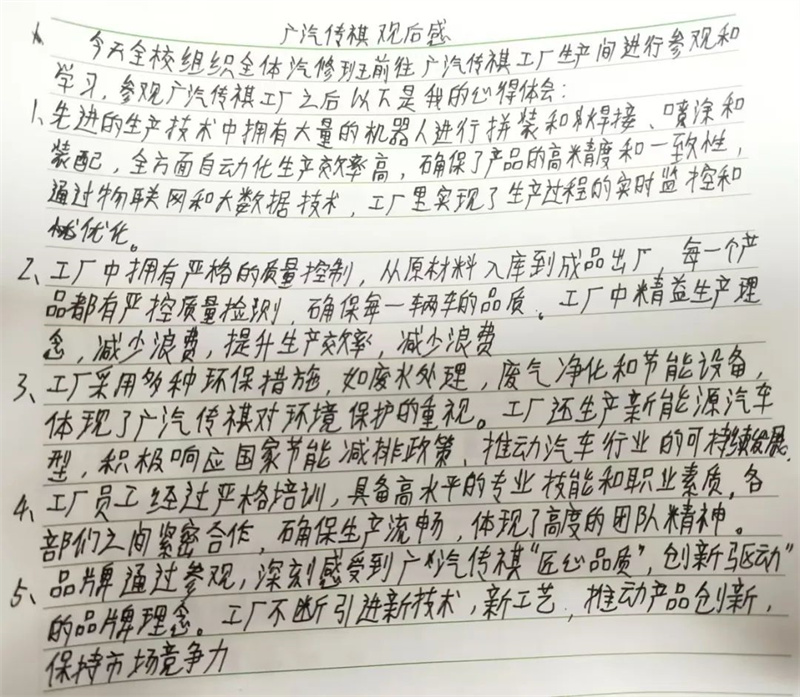 广汽传祺观后感
今天全校组织全体汽修班前往广汽传祺工厂生产间进行参观和
学习，参观广汽传祺工厂之后以下是我的心得体会：
1、先进的生产技术中拥有大量的机器人进行拼装和焊接、喷涂和
装配，全方面自动化生产效率高，确保了产品的高精度和一致性，
通过物联网和大数据技术，工厂里实现了生产过程的实时监控和
优化。
2、工厂中拥有严格的质量控制，从原材料入库到成品出厂，每一个产
品都有严控质量检测，确保每一辆车的品质。工厂中精益生产理
念，减少浪费，提升生产效率，减少浪费
3、工厂采用多种环保措施，如废水处理，废气净化和节能设备，
体现了广汽传祺对环境保护的重视。工厂还生产新能源汽车
型，积极响应国家节能减排政策、推动汽车行业的可持续发展.
4、工厂员工经过严格培训，具备高水平的专业技能和职业素质。各
部们之间紧密合作，确保生产流畅，体现了高度的团队精神。
5、品牌通过参观，深刻感受到广汽传祺“匠心品质”，创新驱动”
的品牌理念。工厂不断引进新技术，新工艺，推动产品创新，
保持市场竞争力